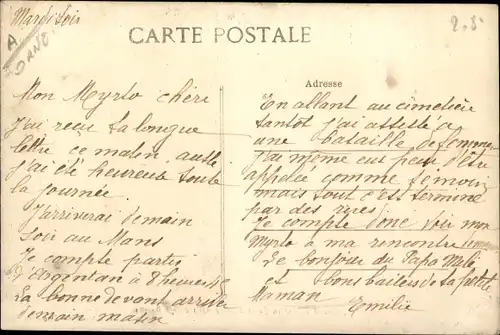 Mardi soir
A
DANO
2.5
CARTE POSTALE
Adresse
Mon Myrto chéri
J'ai reçu ta longue
lettre ce matin. aussi
j'ai été heureuse toute
la journée
J'arriverai demain
soir au Mans
Je compte partir
d'Argentan à 8 heures
la bonne devant arriver
demain matin
En allant au cimetière
tantôt j'ai assisté à
une bataille de femmes
j'ai même eut peur d'être
appelée comme témoin
mais tout c'est terminé
par des rires
Je compte donc voir mon
Myrto à ma rencontre demain
Le bonjour du Papa
et bons baisers de ta petite
Maman
Emilie